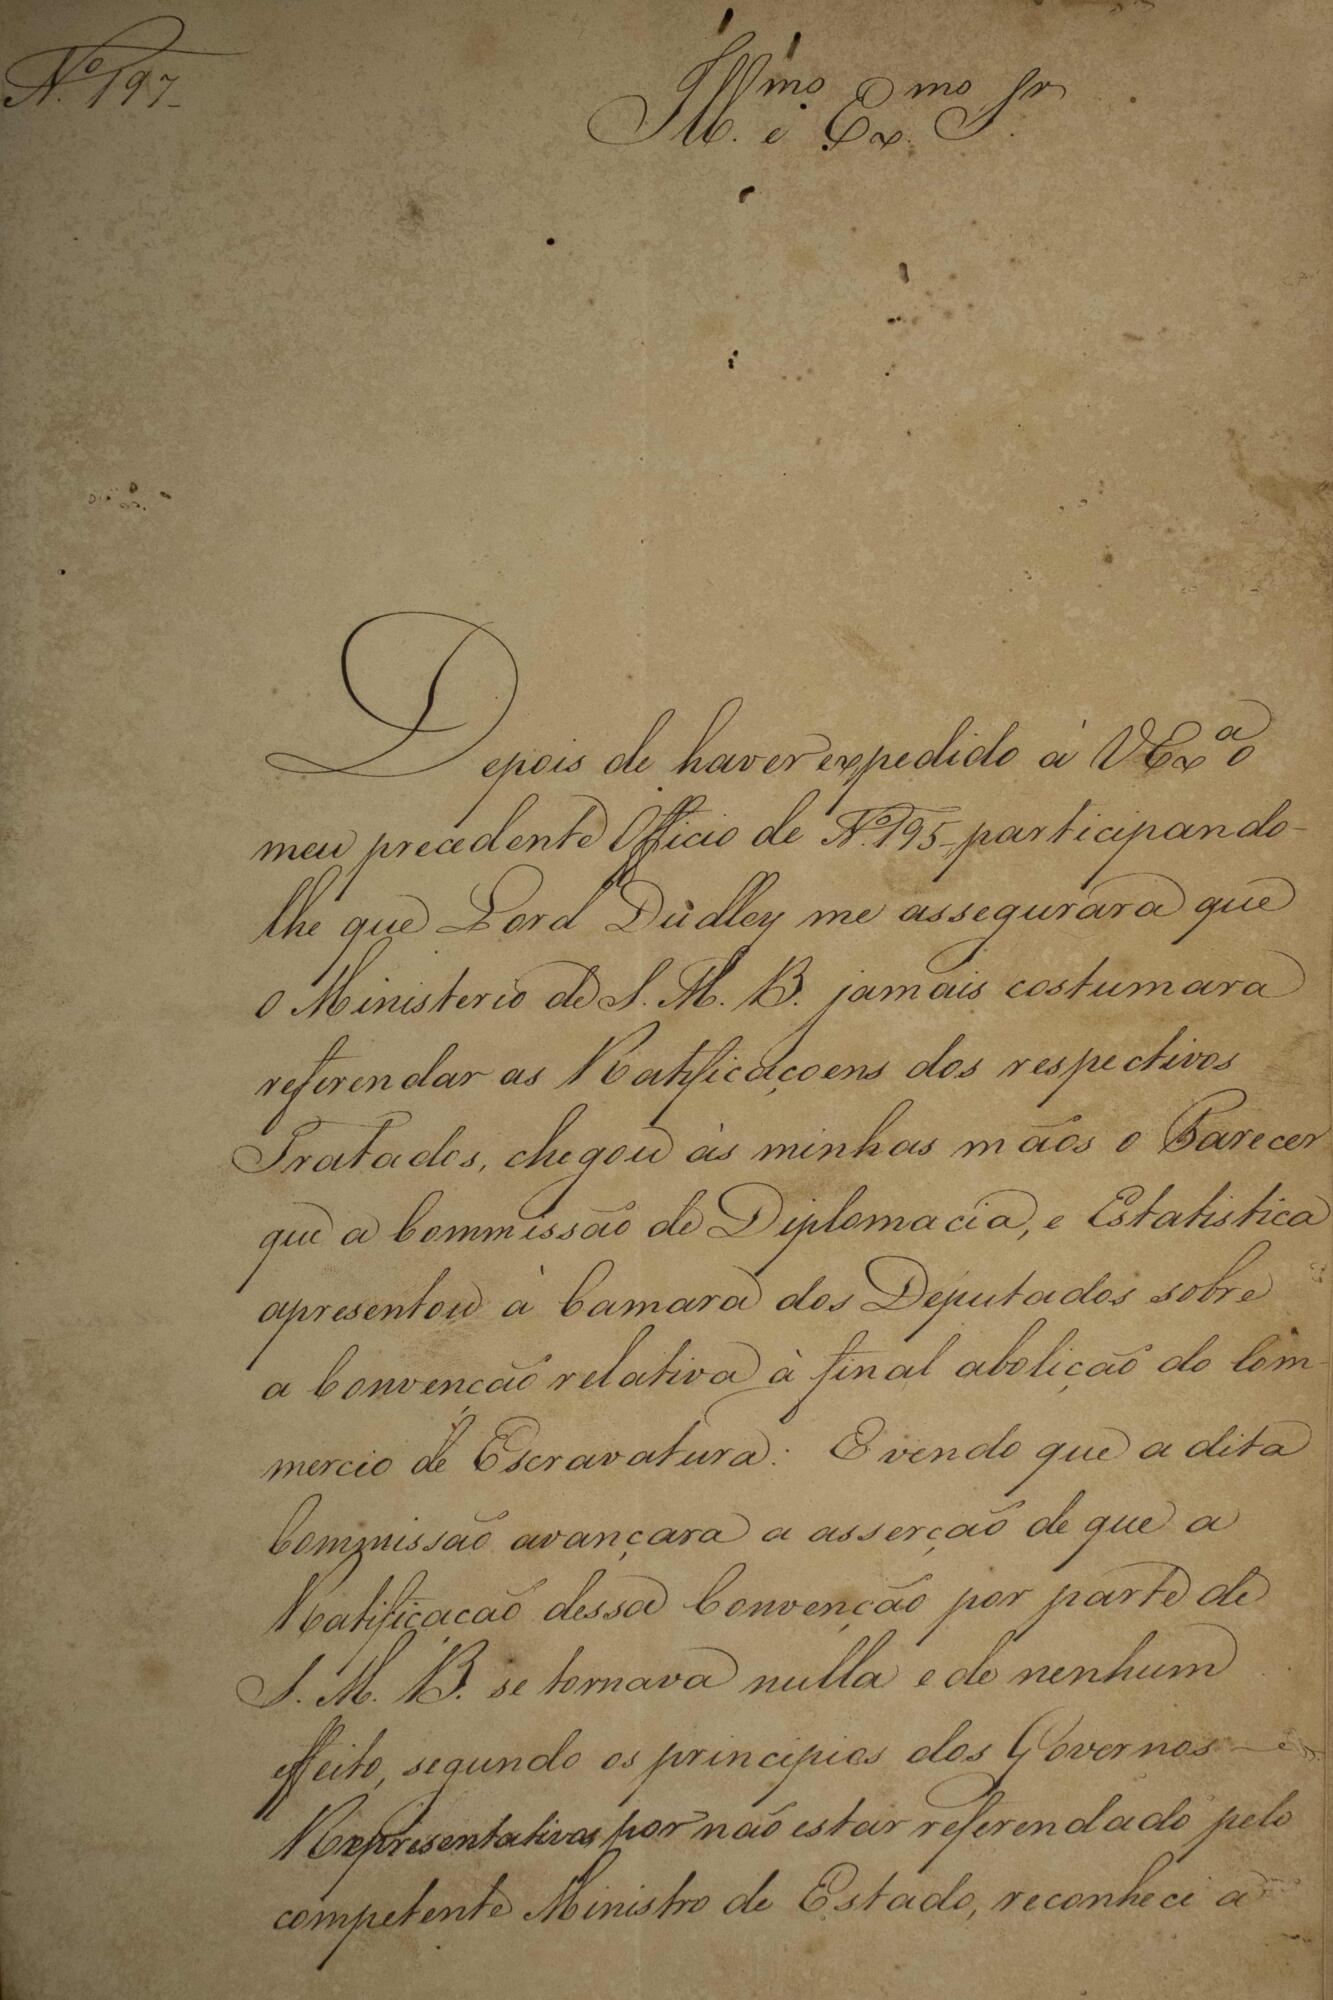 Nº 197_
Ill.mo e Ex.mo Snr.
Depois de haver expedido à VExª o
meu precedente Officio de Nº 195_participando-
lhe que Lord Dudley me assegurara que
o Ministerio de S. M. B. jamais costumara
referendar as Ratificaçoens dos respectivos
Tratados, chegou às minhas mãos o Parecer
que a Commissão de Diplomacia, e Estatistica
apresentou à Camara dos Deputados sobre
a Convenção relativa à final abolição do Com-
mercio de Escravatura: E vendo que a dita
Commissão avançara a asserção de que a
Ratificacaõ dessa Convenção por parte de
S. M. B. se tornava nulla e de nenhum
effeito, segundo os principios dos Governos
Representativos por não estar referendado pelo
competente Ministro de Estado, reconheci a